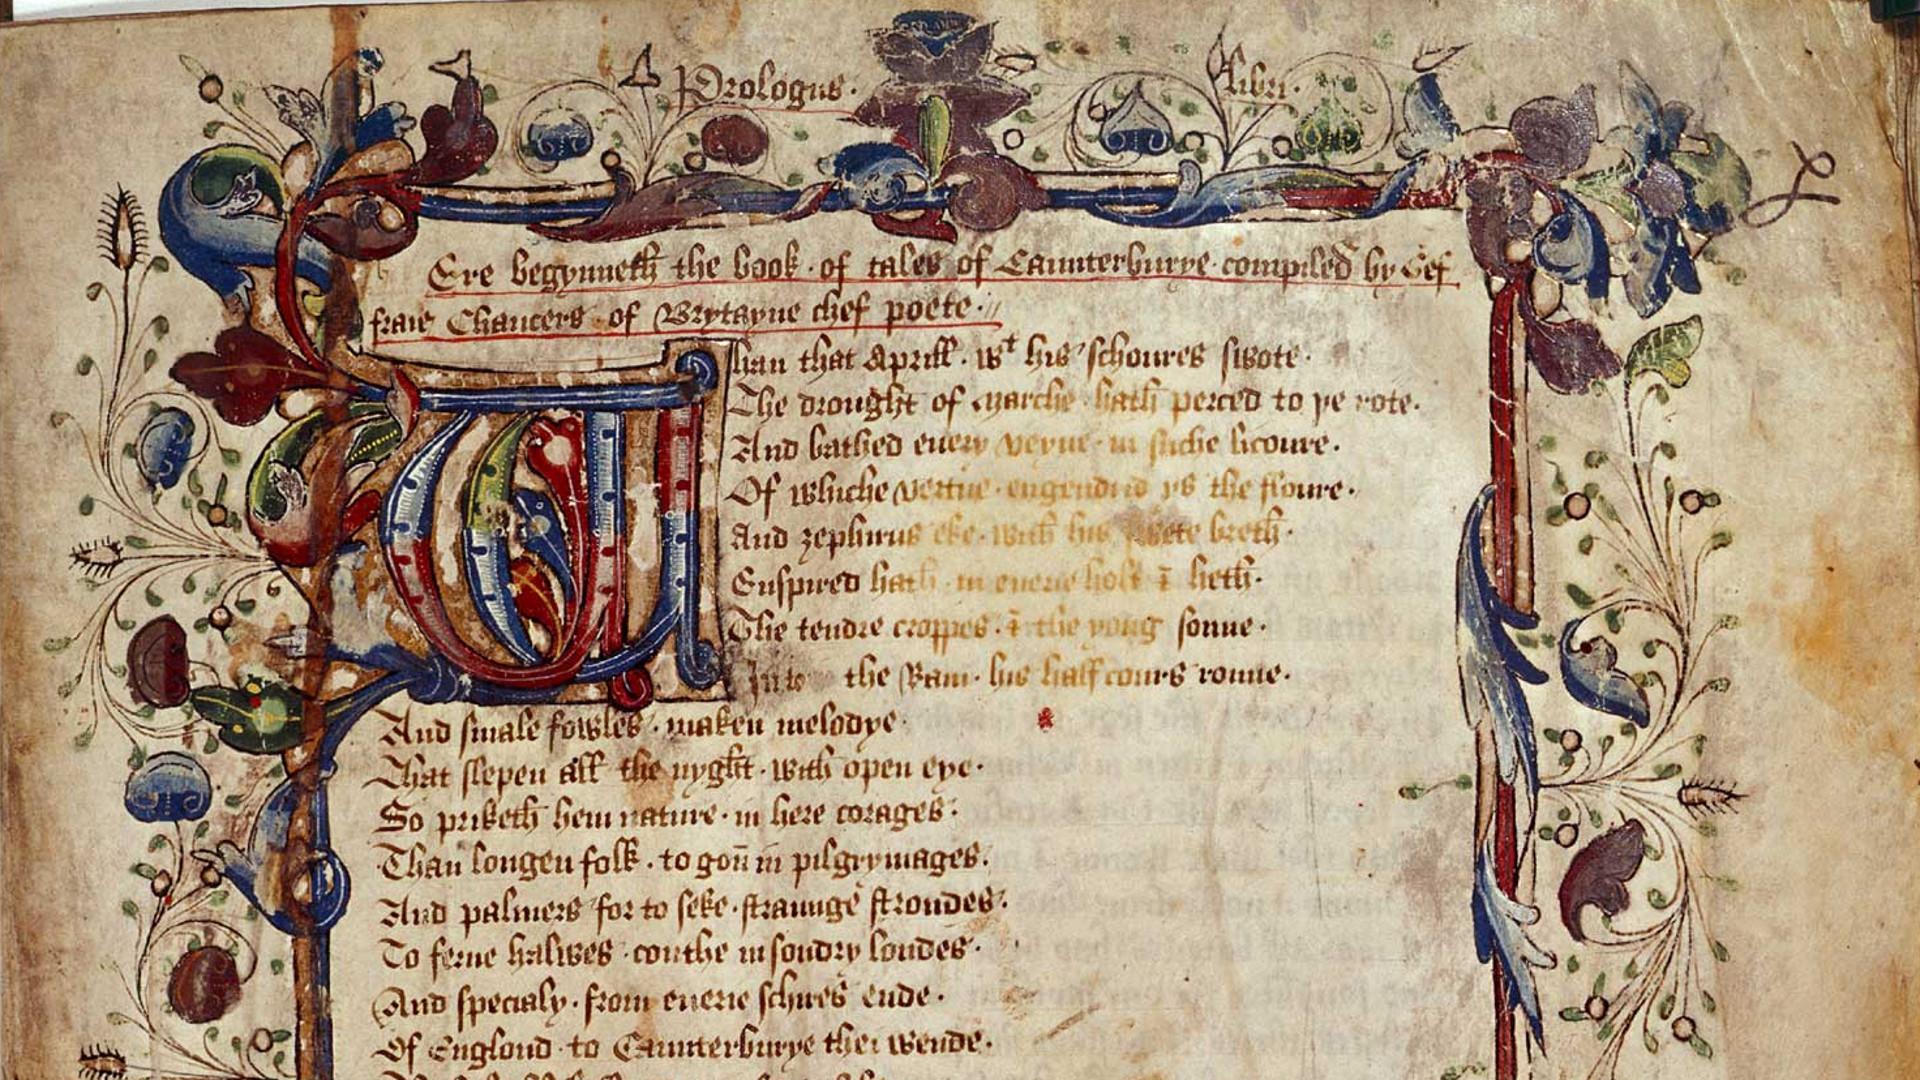 Prologus · libri ·
Ere begynneth the book · of tales of Caunterburye · compiled by Gef
fraie Chaucers · of Brytayne chef poete ·
Whan that Aprill · wt his schoures swote ·
The drought of marche · hath perced to þe rote ·
And bathed euery veyne · in suche licoure ·
Of whiche vertue · engendrid ys the floure ·
And zephirus eke · with his swete breth ·
Enspired hath · in euerie holt ī heth ·
The tendre croppes · ī the yong sonne ·
Into the Ram · his half cours ronne ·
And smale fowles · maken melodye ·
That slepen all the nyght · with open eye ·
So priketh hem nature · in here corages ·
Than longen folk · to gon in pilgrymages ·
And palmers for to seke · straunge strondes ·
To ferne halwes · couthe in sondry londes ·
And specialy · from euerie schires ende ·
Of Englond · to Caunterburye thei wende ·